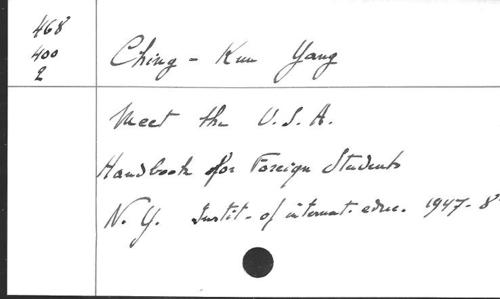 468
400
2
Ching - Kun Yang
Meet the U.S.A.
Handbook for Foreign Students
N. Y. Instit. of internat. educ. 1947-8